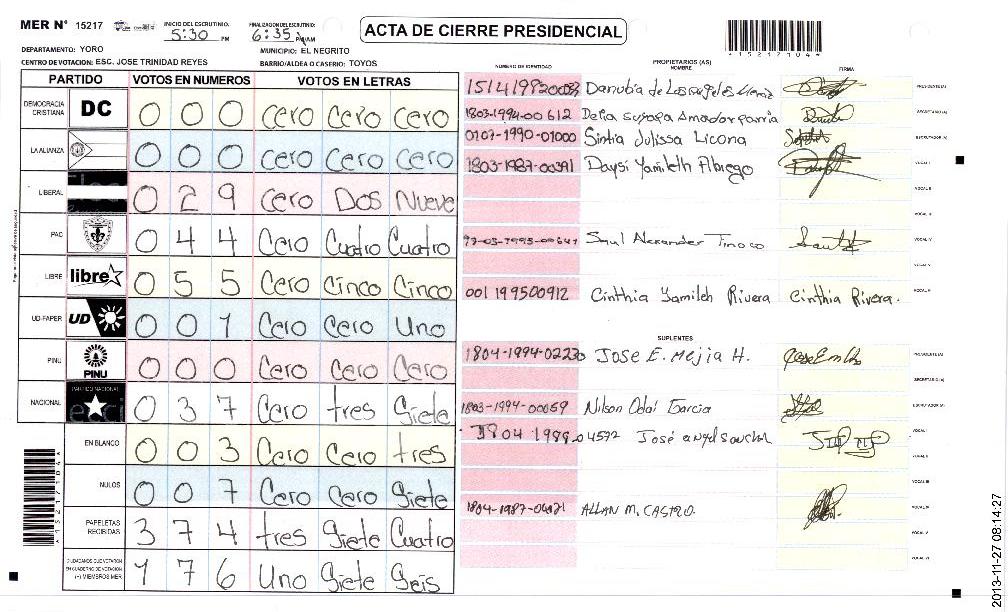 MER N° 15217
INICIO DEL ESCRUTINIO: 5:30 PM
FINALIZACION DEL ESCRUTINIO: 6:35 PM/AM
ACTA DE CIERRE PRESIDENCIAL
*15217104*
DEPARTAMENTO: YORO
MUNICIPIO: EL NEGRITO
CENTRO DE VOTACION: ESC. JOSE TRINIDAD REYES
BARRIO/ALDEA O CASERIO: TOYOS
PARTIDO VOTOS EN NUMEROS VOTOS EN LETRAS
DEMOCRACIA CRISTIANA DC 0 0 0 Cero Cero Cero
LA ALIANZA 0 0 0 Cero Cero Cero
LIBERAL 0 2 9 Cero Dos Nueve
PAC 0 4 4 Cero Cuatro Cuatro
LIBRE libre 0 5 5 Cero Cinco Cinco
UD-FAPER UD 0 0 1 Cero Cero Uno
PINU PINU 0 0 0 Cero Cero Cero
NACIONAL PARTIDO NACIONAL 0 3 7 Cero tres Siete
EN BLANCO 0 0 3 Cero Cero tres
NULOS 0 0 7 Cero Cero Siete
PAPELETAS RECIBIDAS 3 7 4 tres Siete Cuatro
CIUDADANOS QUE VOTARON EN CUADERNO DE VOTACION (+) MIEMBROS MER 1 7 6 Uno Siete Seis
*15217104*
NUMERO DE IDENTIDAD
PROPIETARIOS (AS)
NOMBRE
FIRMA
Danubia de Los angeles
PRESIDENTE(A)
1803-1994-00612 Delia Amador
SECRETARIO (A)
0107-1990-01000 Sintia Julissa Licona
ESCRUTADOR (A)
1803-1987-00391 Daysi Yamileth
VOCAL I
VOCAL II
VOCAL III
Saul Alexander Tinoco
VOCAL IV
VOCAL V
001 199500912 Cinthia Yamileh Rivera Cinthia Rivera.
VOCAL VI
SUPLENTES
1804-1994-02230 Jose E. Mejia H.
PRESIDENTE(A)
SECRETARIO (A)
1803-1994-00059 Nilson Odai Garcia
ESCRUTADOR (A)
1804 1989-04592 José angel
VOCAL I
VOCAL II
VOCAL III
1804-1987-04021 ALLAN M. CASTRO.
VOCAL IV
VOCAL V
VOCAL VI
2013-11-27 08:14:27